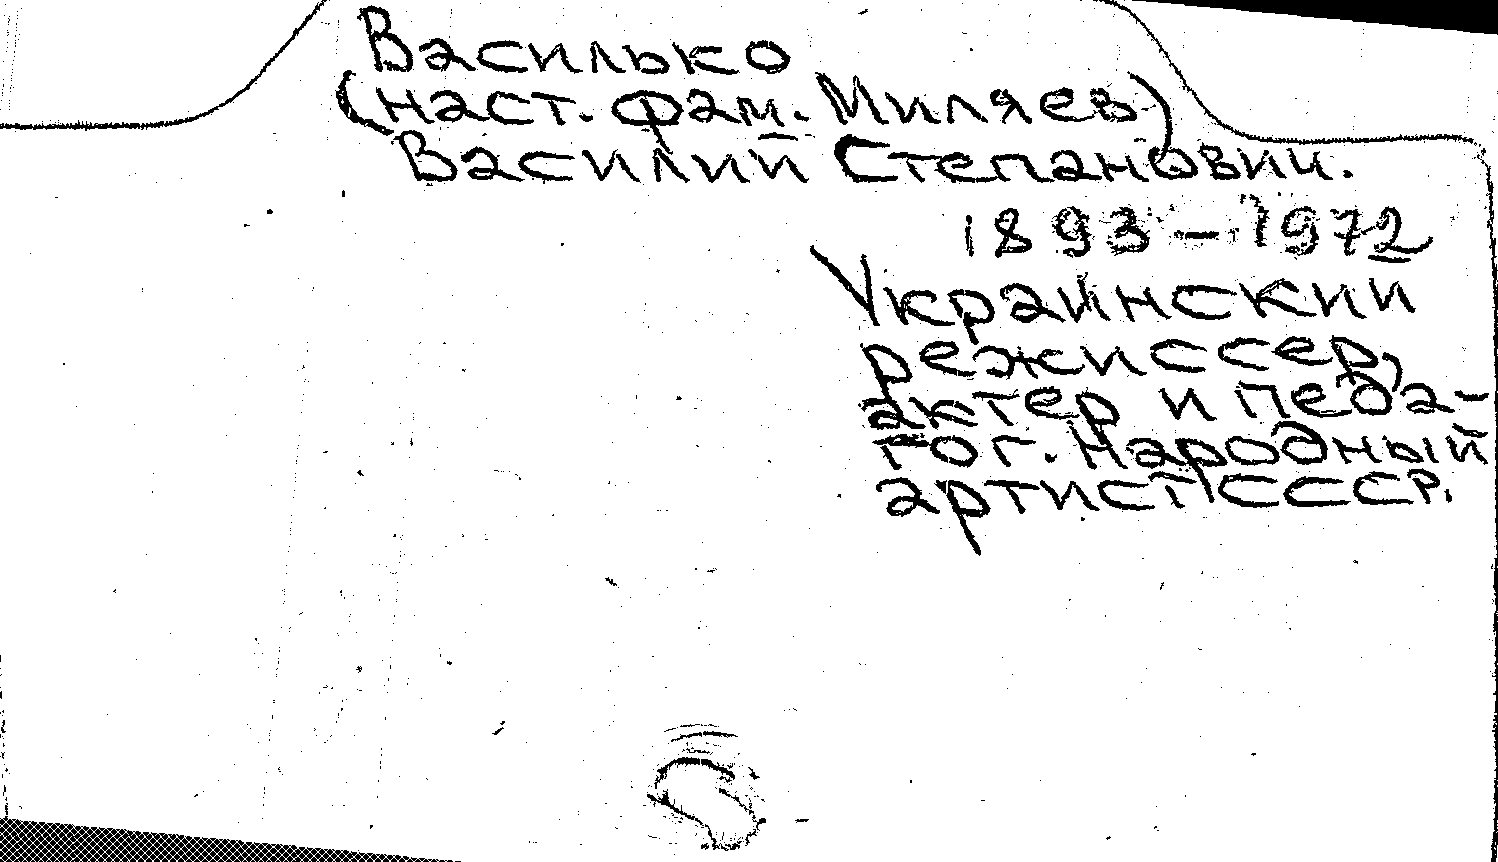 Василько
(наст. фам. Миляев)
Василий Степанович.
1893-1972
Украинский
режиссер,
актер и педа-
гог. Народный
артист СССР.